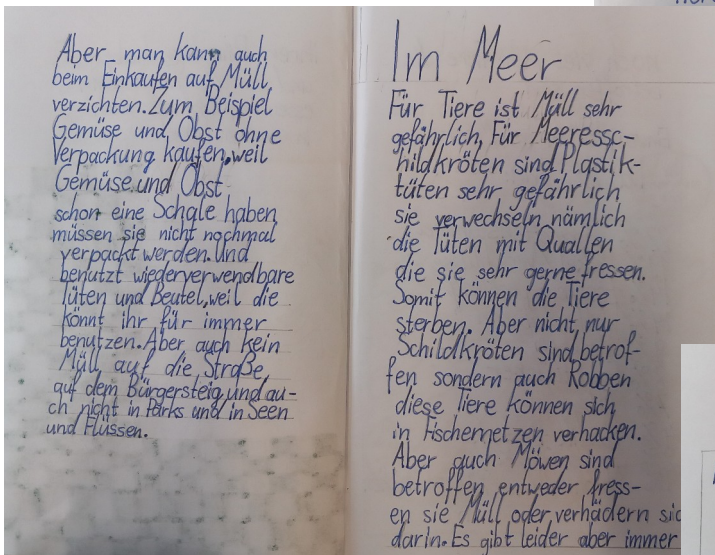 Aber man kann auch
beim Einkaufen auf Müll
verzichten. Zum Beispiel
Gemüse und Obst ohne
Verpackung kaufen, weil
Gemüse und Obst
schon eine Schale haben
müssen sie nicht nochmal
verpackt werden. Und
benutzt wiederverwendbare
Tüten und Beutel, weil die
könnt ihr für immer
benutzen. Aber auch kein
Müll auf die Straße,
auf dem Bürgersteig und au-
ch nicht in Parks und in Seen
und Flüssen.
Im Meer
Für Tiere ist Müll sehr
gefährlich. Für Meeressc-
hildkröten sind Plastik-
tüten sehr gefährlich
sie verwechseln nämlich
die Tüten mit Quallen
die sie sehr gerne fressen.
Somit können die Tiere
sterben. Aber nicht nur
Schildkröten sind betrof-
fen sondern auch Robben
diese Tiere können sich
in Fischernetzen verhacken.
Aber auch Möwen sind
betroffen entweder fress-
en sie Müll oder verhädern sic
darin. Es gibt leider aber immer